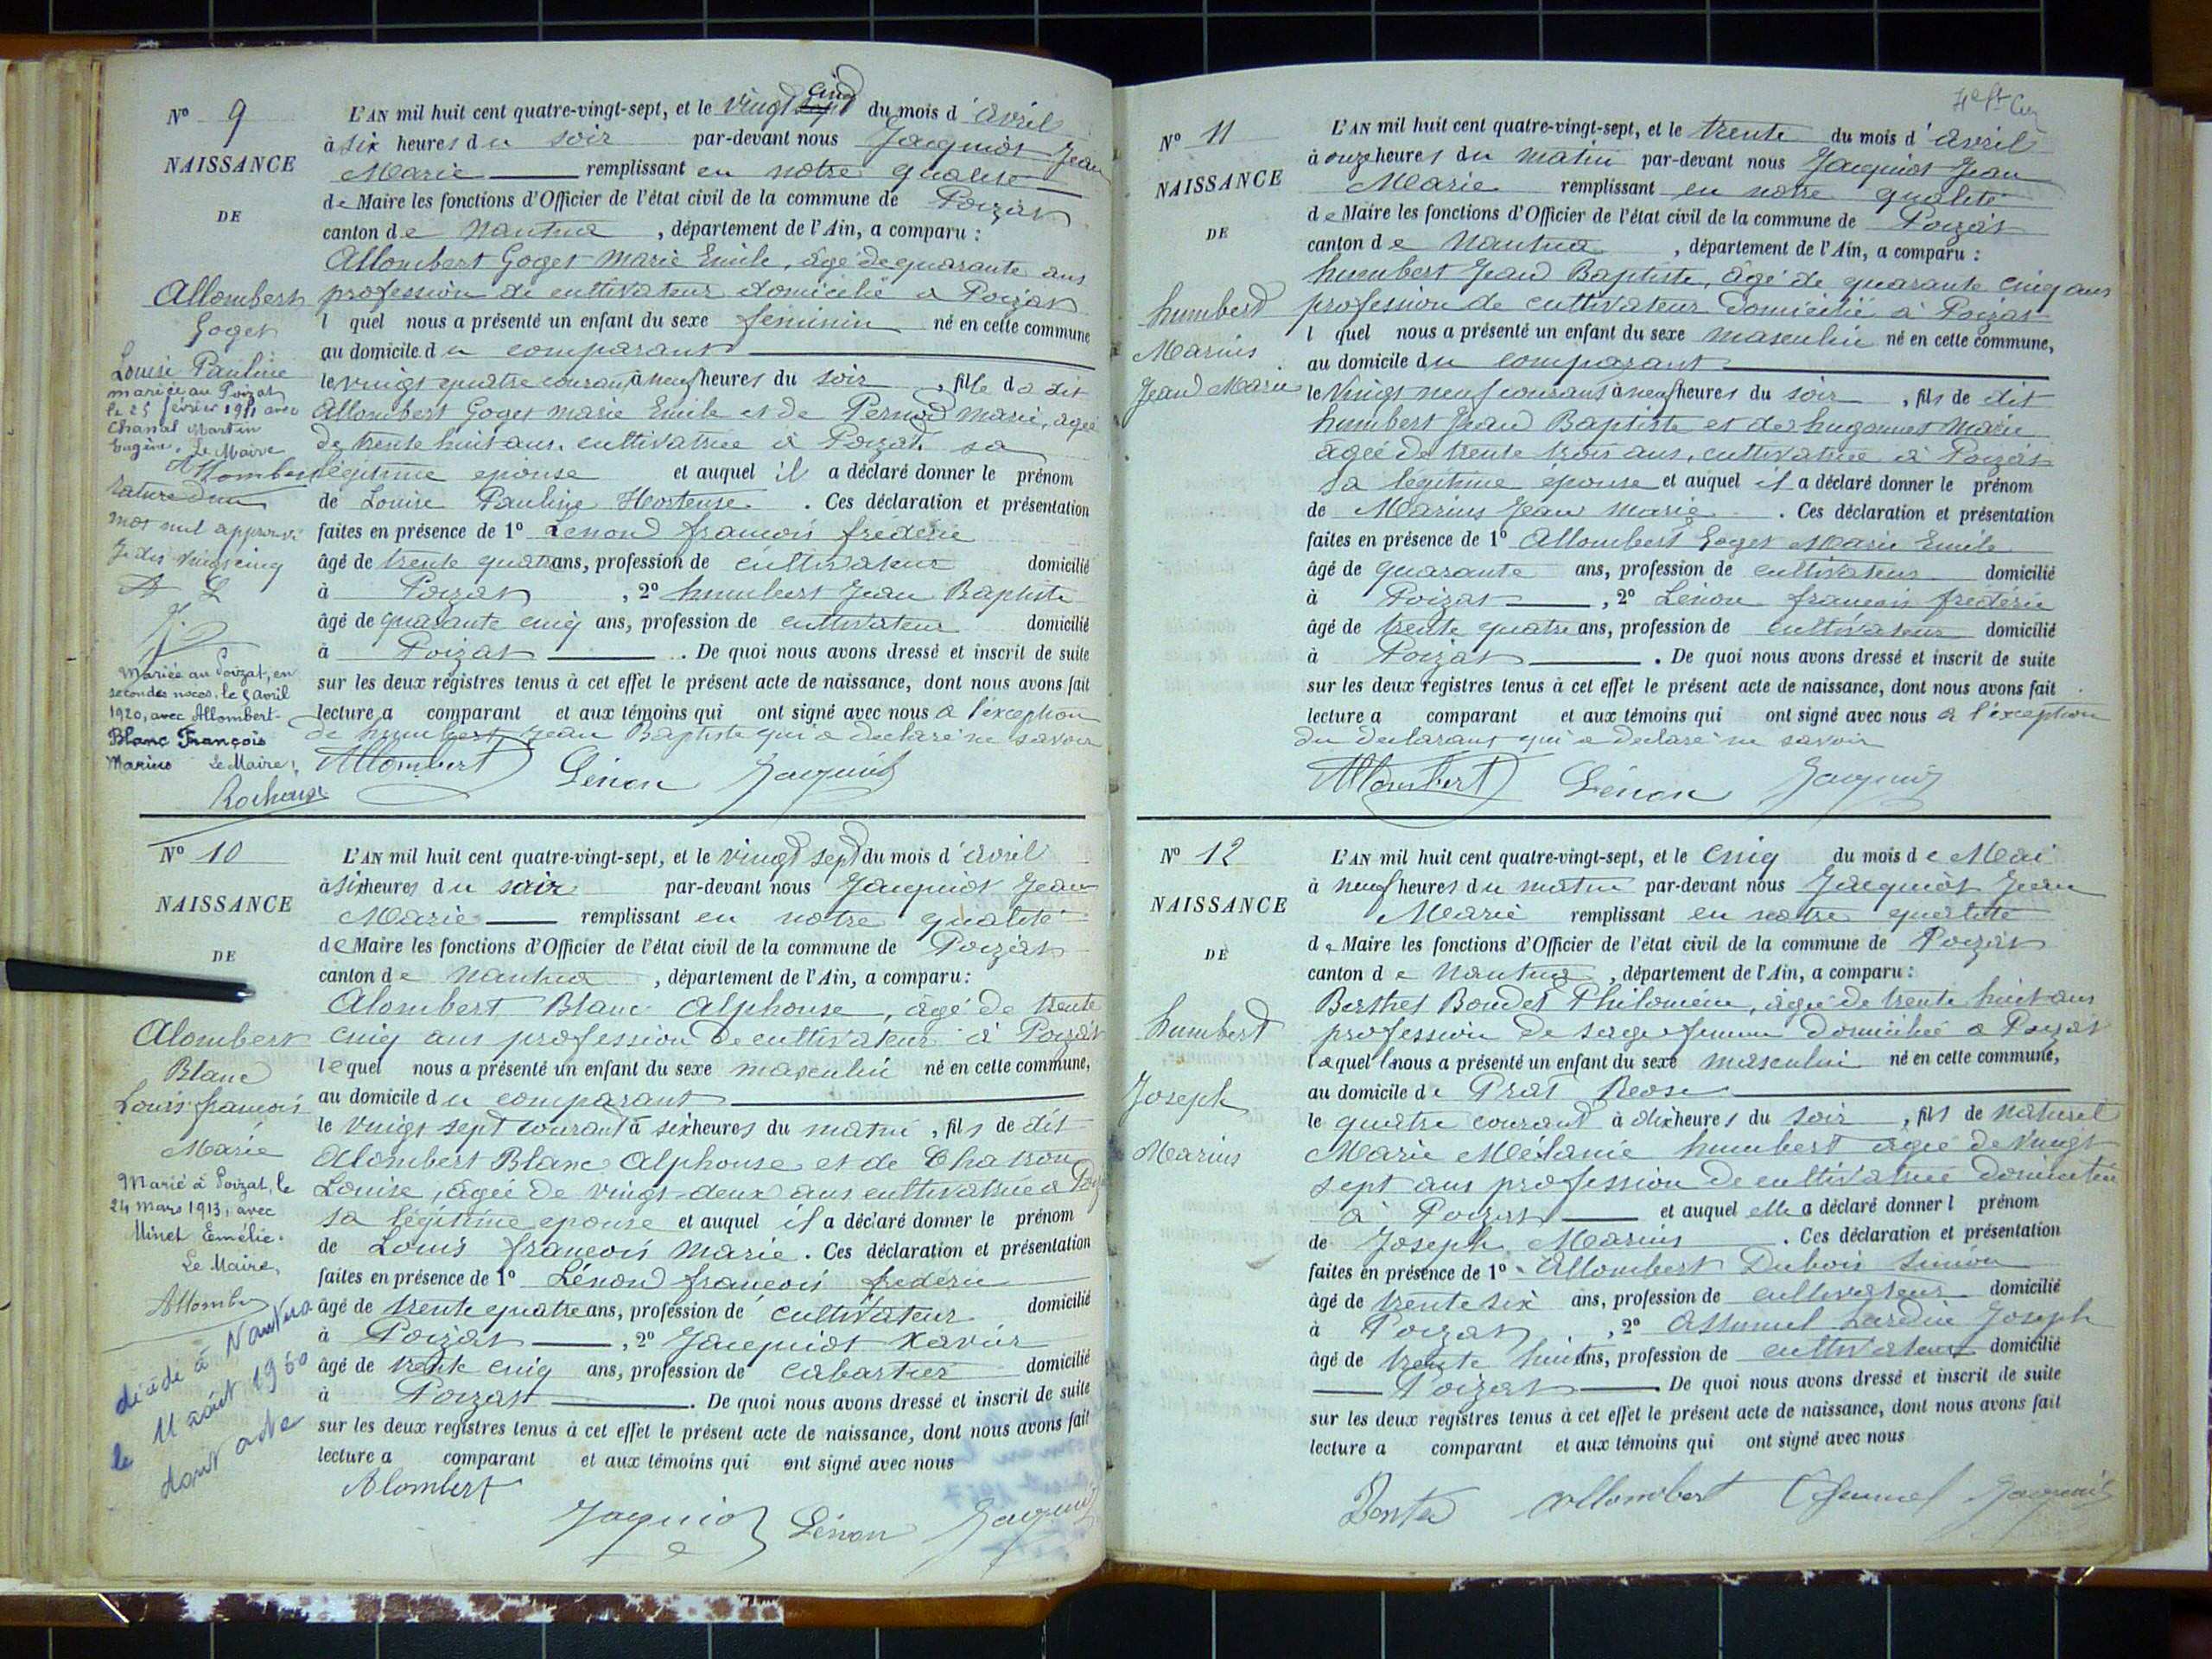 Nº 9
NAISSANCE
DE
Allombert
Goget
Louise Pauline
mariée au Poizat
le 25 février 1911 avec
Chanal Martin
Eugène. Le Maire
Allombert
rature d'un
mot nul approuvé
Je dis vingt cinq
A L
J.
Mariée au Poizat, en
secondes noces, le 5 avril
1920, avec Allombert-
Blanc François
Marius Le Maire,
L'AN mil huit cent quatre-vingt-sept, et le vingt sept cinq du mois d'avril
à six heures du soir par-devant nous Jacquiot Jean
Marie remplissant en notre qualité
de Maire les fonctions d'Officier de l'état civil de la commune de Poizat
canton de Nantua, département de l'Ain, a comparu :
Allombert Goget Marie Emile, âgé de quarante ans
profession de cultivateur domicilié à Poizat
l quel nous a présenté un enfant du sexe feminin né en cette commune
au domicile du comparant
le vingt quatre courant à neuf heures du soir, fille du dit
Allombert Goget marie Emile et de Pernod marie, agée
de trente huit ans. cultivatrice à Poizat. sa
légitime epouse et auquel il a déclaré donner le prénom
de Louise Pauline Hortense. Ces déclaration et présentation
faites en présence de 1º Lenon francois fréderic
âgé de trente quatre ans, profession de cultivateur domicilié
à Poizat, 2º humbert Jean Baptiste
âgé de quarante cinq ans, profession de cultivateur domicilié
à Poizat. De quoi nous avons dressé et inscrit de suite
sur les deux registres tenus à cet effet le présent acte de naissance, dont nous avons fait
lecture a comparant et aux témoins qui ont signé avec nous a l'exception
de humbert Jean Baptiste qui a declaré ne savoir
Allombert Lénon Jacquiot
Nº 10
NAISSANCE
DE
Alombert
Blanc
Louis francois
Marie
Marié à Poizat, le
24 mars 1913, avec
Minet Emélie.
Le Maire,
Allombert
décédé à Nantua
le 11 août 1960
dont acte
L'AN mil huit cent quatre-vingt-sept, et le vingt sept du mois d'avril
à six heures du soir par-devant nous Jacquiot Jean
Marie remplissant en notre qualité
de Maire les fonctions d'Officier de l'état civil de la commune de Poizat
canton de Nantua, département de l'Ain, a comparu :
Alombert Blanc Alphonse, âgé de trente
cinq ans profession de cultivateur à Poizat
lequel nous a présenté un enfant du sexe masculin né en cette commune,
au domicile du comparant
le vingt sept courant à six heures du matin, fils de dit
Alombert Blanc Alphonse et de Chatron
Louise, âgée de vingt-deux ans cultivatrice a Poiz
sa légitime epouse et auquel il a déclaré donner le prénom
de Louis francois Marie. Ces déclaration et présentation
faites en présence de 1º Lénon francois frederic
âgé de trente quatre ans, profession de cultivateur domicilié
à Poizat, 2º Jacquiot Xavier
âgé de trente cinq ans, profession de cabartier domicilié
à Poizat. De quoi nous avons dressé et inscrit de suite
sur les deux registres tenus à cet effet le présent acte de naissance, dont nous avons fait
lecture a comparant et aux témoins qui ont signé avec nous
Alombert
Jaquiot Lénon Jacquiot
Nº 11
NAISSANCE
DE
humbert
Marius
Jean Marie
L'AN mil huit cent quatre-vingt-sept, et le trente du mois d'avril
à onze heures du matin par-devant nous Jacquiot Jean
Marie remplissant en notre qualité
de Maire les fonctions d'Officier de l'état civil de la commune de Poizat
canton de Nantua, département de l'Ain, a comparu :
humbert Jean Baptiste, âgé de quarante cinq ans
profession de cultivateur domicilié à Poizat
l quel nous a présenté un enfant du sexe masculin né en cette commune,
au domicile du comparant
le vingt neuf courant à neuf heures du soir, fils de dit
humbert Jean Baptiste et de hugonnet Marie
âgée de trente trois ans, cultivatrice à Poizat
sa légitime épouse et auquel il a déclaré donner le prénom
de Marius Jean Marie. Ces déclaration et présentation
faites en présence de 1º Allombert Goget Marie Emile
âgé de quarante ans, profession de cultivateur domicilié
à Poizat, 2º Lénon francois frederic
âgé de trente quatre ans, profession de cultivateur domicilié
à Poizat. De quoi nous avons dressé et inscrit de suite
sur les deux registres tenus à cet effet le présent acte de naissance, dont nous avons fait
lecture a comparant et aux témoins qui ont signé avec nous a l'exception
du declarant qui a declaré ne savoir
Allombert Lénon Jacquiot
Nº 12
NAISSANCE
DE
humbert
Joseph
Marius
L'AN mil huit cent quatre-vingt-sept, et le cinq du mois de Mai
à neuf heures du matin par-devant nous Jacquiot Jean
Marie remplissant en notre qualité
de Maire les fonctions d'Officier de l'état civil de la commune de Poizat
canton de Nantua, département de l'Ain, a comparu :
Berthet Bondet Philomène, âgée de trente huit ans
profession de sage femme domiciliée a Poizat
laquelle nous a présenté un enfant du sexe masculin né en cette commune,
au domicile de Prat Rose
le quatre courant à dix heures du soir, fils de naturel
Marie Mélanie humbert agée de vingt
sept ans profession de cultivatrice domiciliée
à Poizat et auquel elle a déclaré donner l prénom
de Joseph Marius. Ces déclaration et présentation
faites en présence de 1º Allombert Dubois Simon
âgé de trente six ans, profession de cultivateur domicilié
à Poizat, 2º Assumel Lurdin Joseph
âgé de trente huit ans, profession de cultivateur domicilié
Poizat. De quoi nous avons dressé et inscrit de suite
sur les deux registres tenus à cet effet le présent acte de naissance, dont nous avons fait
lecture a comparant et aux témoins qui ont signé avec nous
allombert Assumel Jacquiot